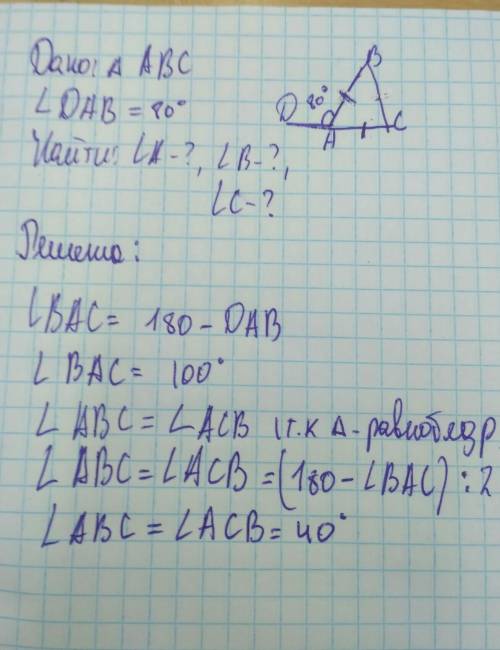 Дано: Δ ABC
∠DAB = 80°
Найти: ∠A-?, ∠B-?,
∠C-?
B
80°
D
A
C
Решено:
∠BAC = 180 - DAB
∠BAC = 100°
∠ABC = ∠ACB (т.к Δ-равнобедр
∠ABC = ∠ACB = (180 - ∠BAC) : 2
∠ABC = ∠ACB = 40°